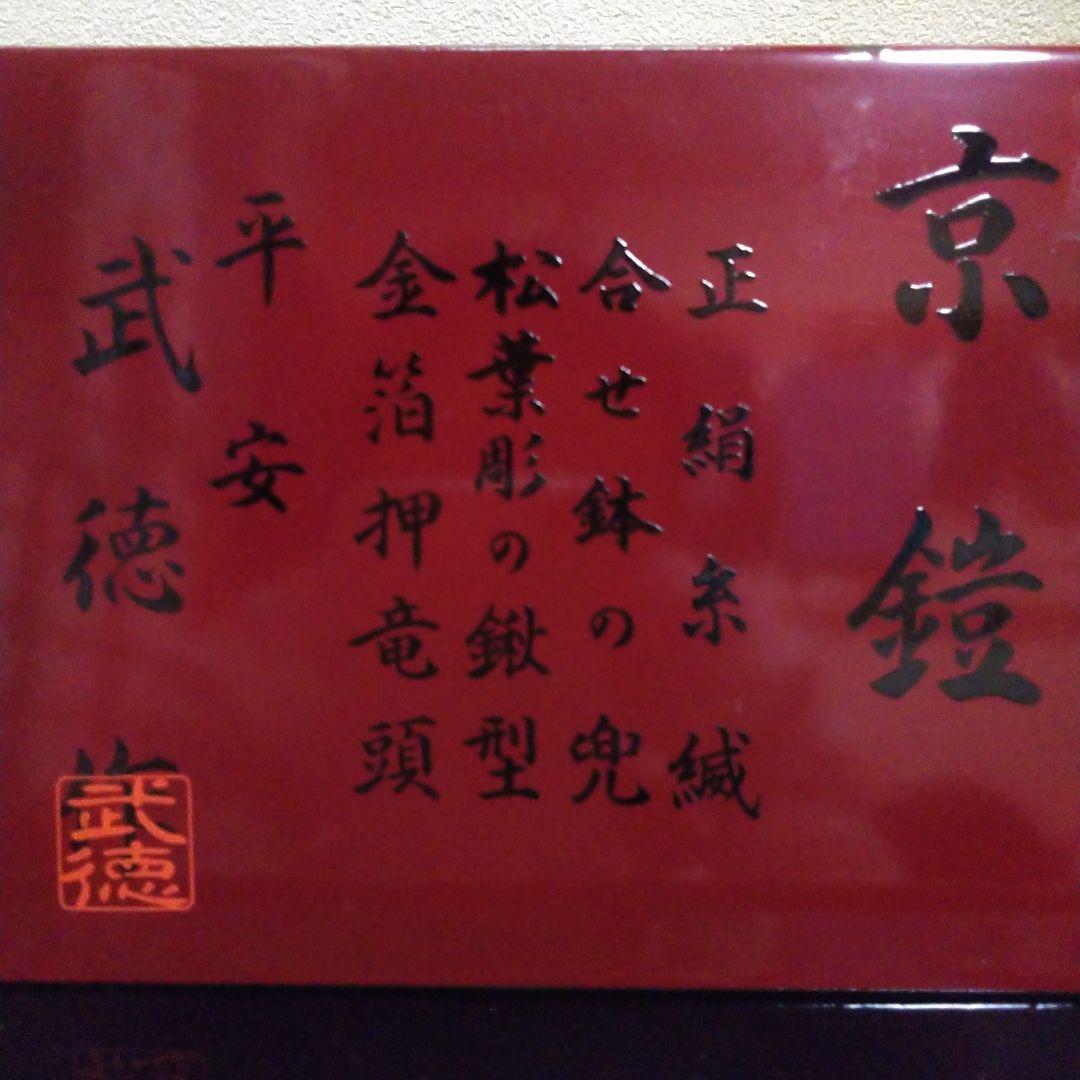 京鎧
正絹糸縅
合せ鉢の兜
松葉彫の鍬型
金箔押竜頭
平安
武徳
武徳